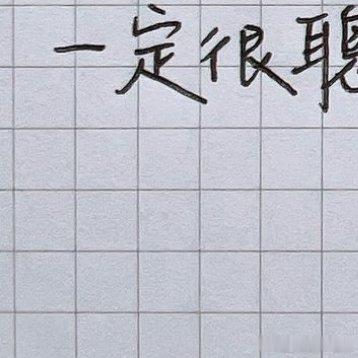 一定很聪